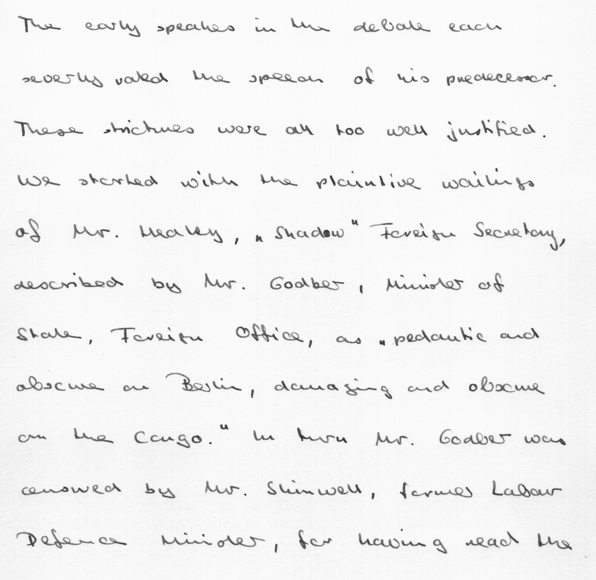 The early speakes in the debate each
severly rated the speech of his predecessor.
These strictures were all too well justified.
We started with the plaintive wailings
of Mr. Healey, „Shadow" Foreign Secretary,
described by Mr. Godber, Minister of
State, Foreign Office, as „pedantic and
obscure on Berlin, damaging and obscure
on the Congo." In turn Mr. Godber was
censored by Mr. Shinwell, former Labour
Defence Minister, for having read the